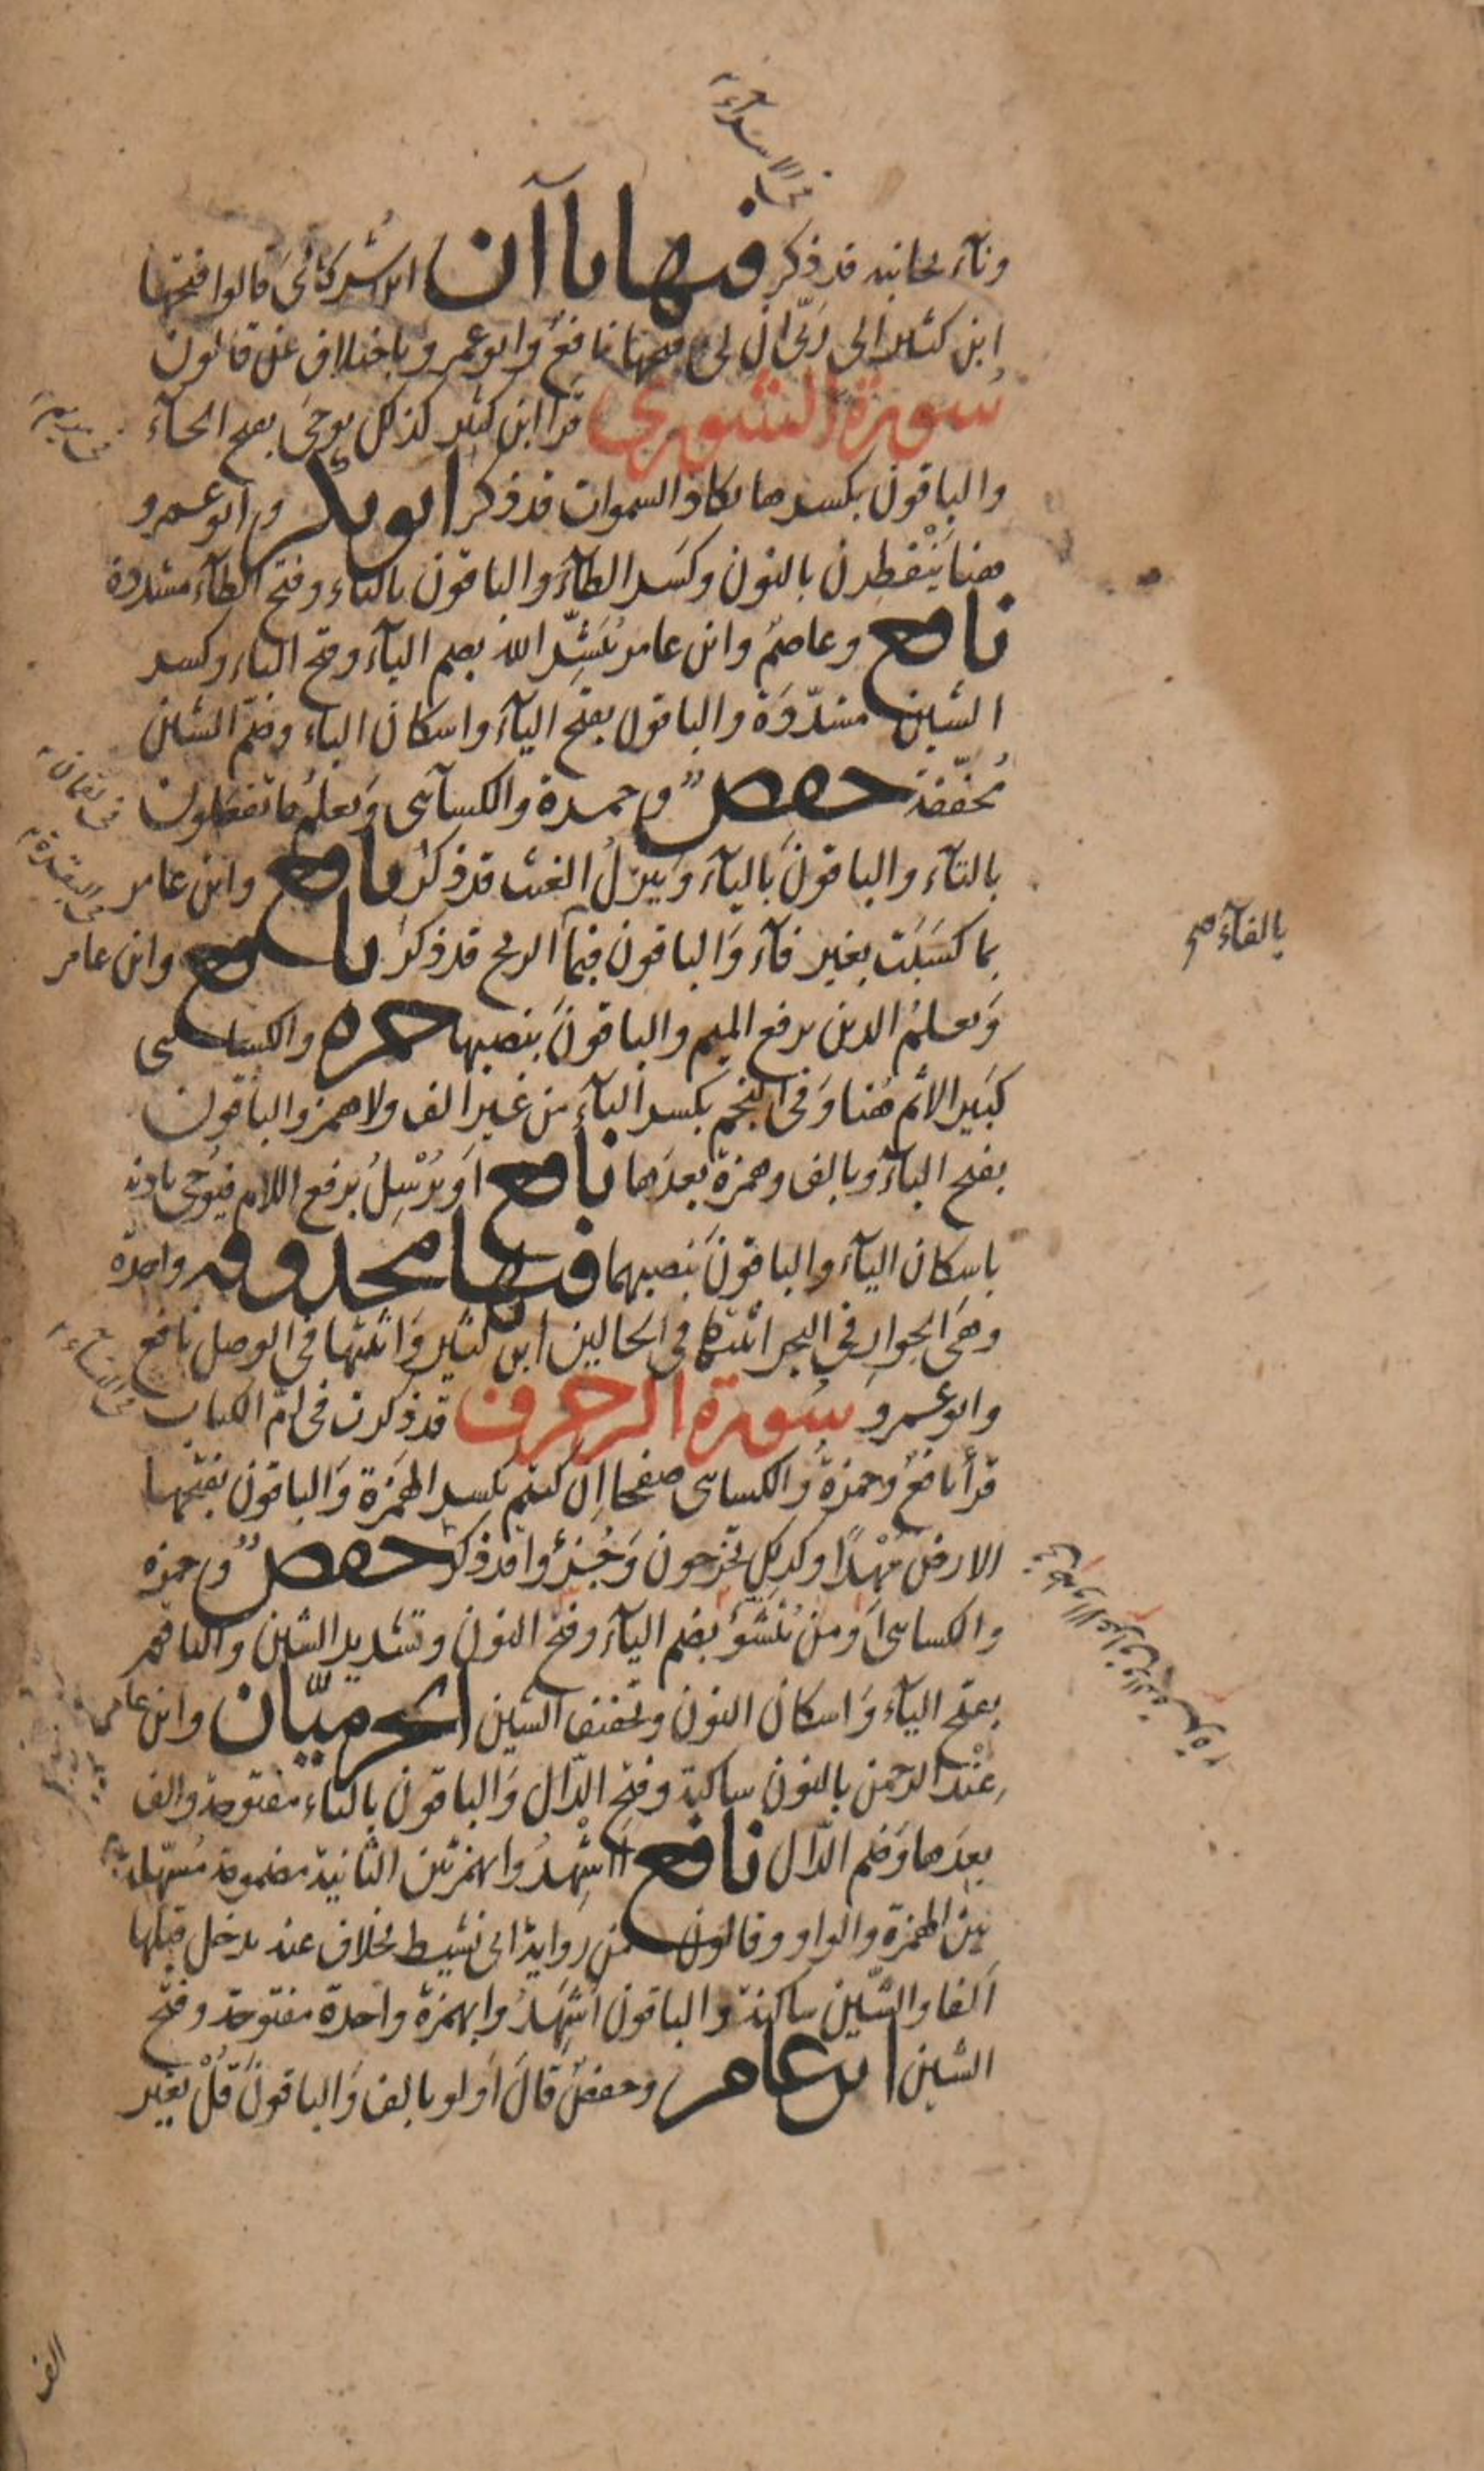 في الاسراء
ونآء بجانبه قد ذكر فيها ياآن اين شركائى قالوا فتحها
ابن كثير الى ربى ان لى فتحها نافع وابو عمرو باختلاف عن قالون
سورة الشورى قرا ابن كثير كذلك يوحى بفتح الحآء
والباقون بكسرها تكاد السموات قد ذكر ابو بكر وابو عمرو
هنا يَنْفَطِرن بالنون وكسر الطآء والباقون بالتاء وفتح الطآء مشددة
نافع وعاصم وابن عامر يُبَشِّر الله بضم اليآء وفتح الباء وكسر
الشين مشدّدة والباقون بفتح اليآء واسكان الباء وضم الشين
مُخفّفة حفص وحمزة والكسآئى ويعلم ما تفعلون
بالتآء والباقون باليآء وينزل الغيث قد ذكر نافع وابن عامر
بما كسبت بغير فآء والباقون فبما الريح قد ذكر نافع وابن عامر
بالفآء صح
ويعلمُ الذين برفع الميم والباقون بنصبها حمزه والكسائى
كبير الاثم هنا وفي النجم بكسر البآء من غير الف ولا همز والباقون
بفتح البآء وبالف وهمزة بعدها نافع او يُرْسِلُ برفع اللام فيوحى باذنه
باسكان اليآء والباقون بنصبهما فيها محذوفه واحدة
وهى الجوار في البحر اثبتها في الحالين ابن كثير واثبتها في الوصل نافع
وابو عمرو سورة الزخرف قد ذكرت في ام الكتاب
في النساء
قرأ نافع وحمزة والكسائى صفحا ان كنتم بكسر الهمزة والباقون بفتحها
الارض مهْدًا وكذلك تخرجون وجُزءًا قد ذكر حفص وحمزه
والكسائى اومن يُنَشَّؤ بضم اليآء وفتح النون وتشديد الشين والباقون
بفتح اليآء واسكان النون وتخفيف الشين الحرميّان وابن عامر
عِنْدَ الرحمن بالنون ساكنة وفتح الدّال والباقون بالباء مفتوحة والف
بعدها وضم الدّال نافع ااشْهِدُوا بهمزتين الثانية مضمومة مُسهّلة
بين الهمزة والواو وقالون من رواية ابى نشيط بخلاف عنه يدخل قبلها
الفا والشّين ساكنة والباقون اشَهِدُوا بهمزة واحدة مفتوحة وفتح
الشين ابن عامر وحفص قَالَ اولو بالف والباقون قُلْ بغير
الف